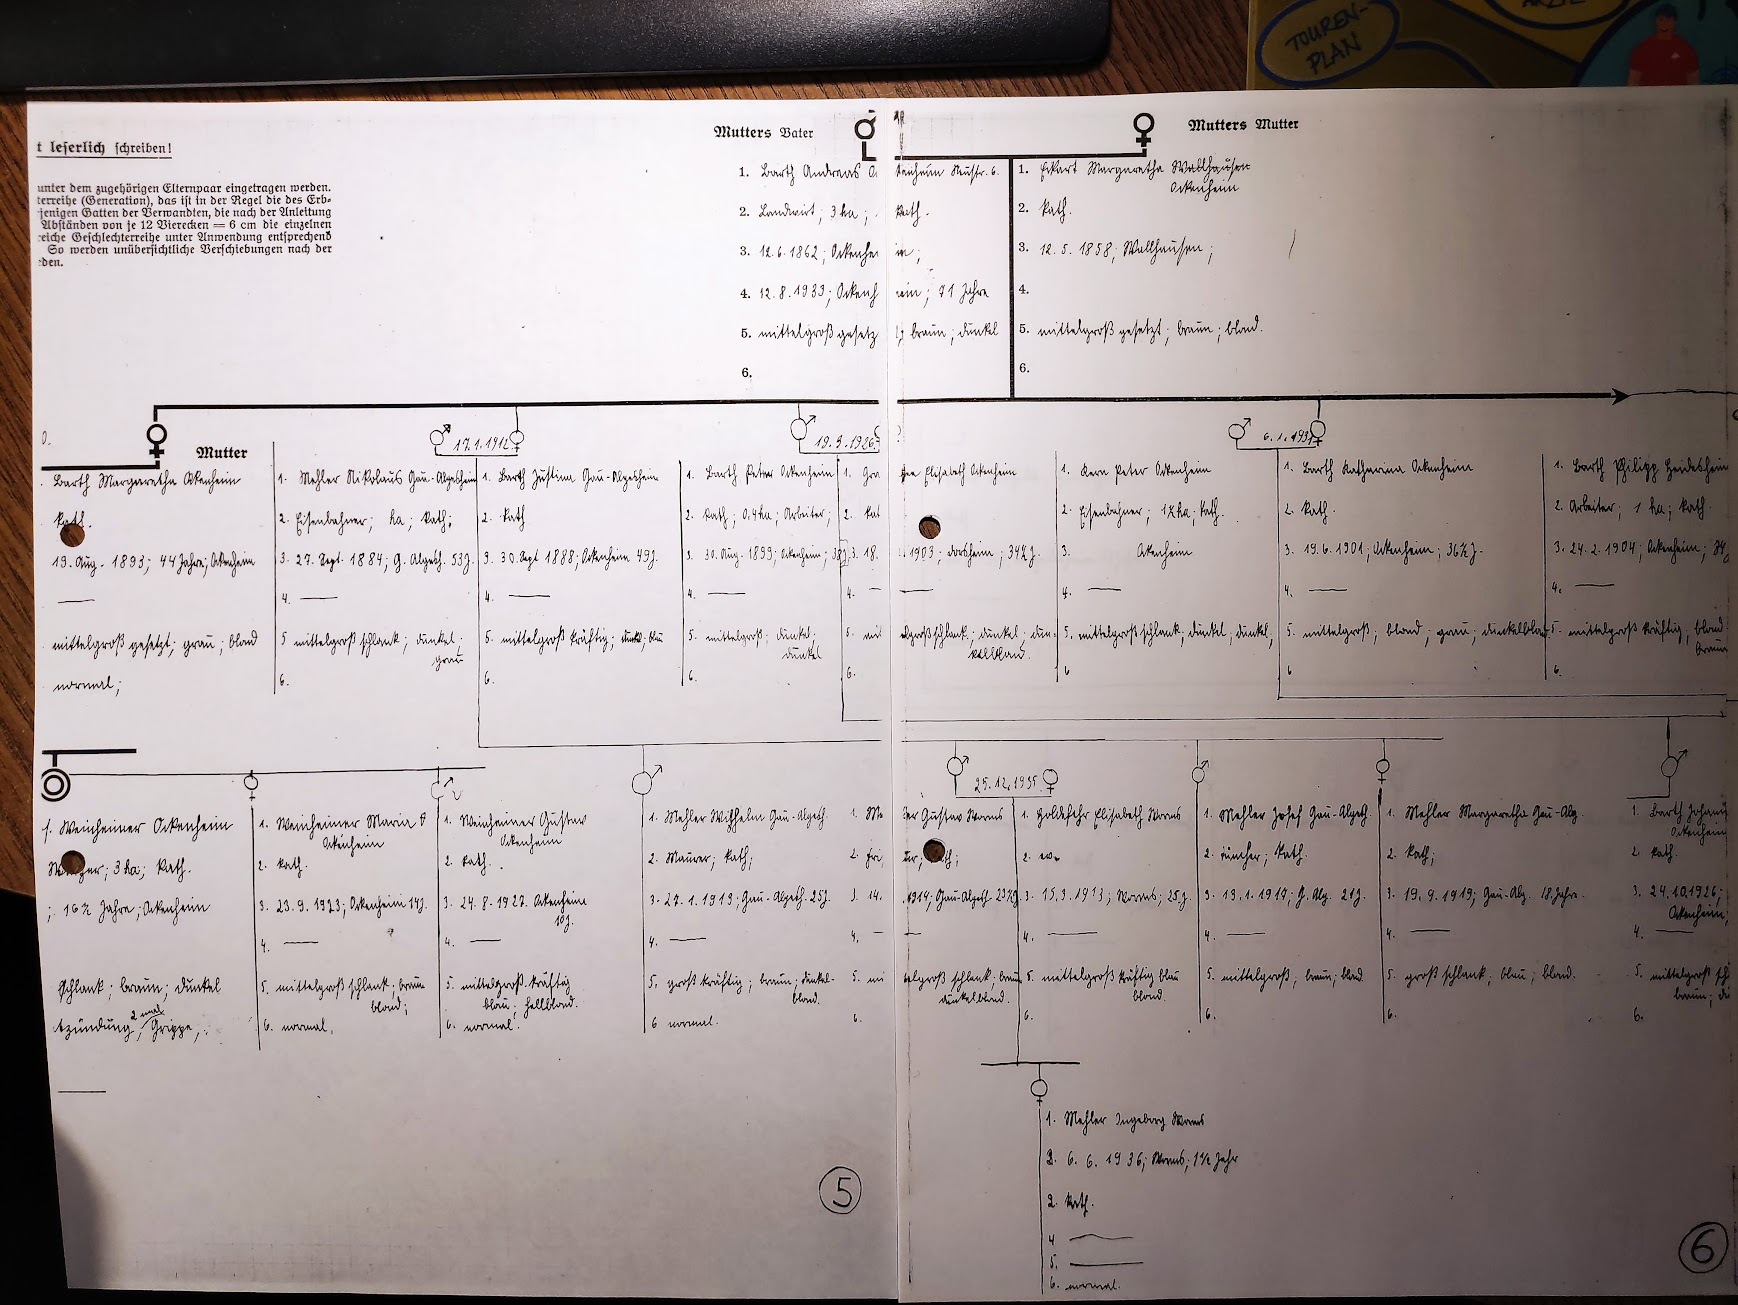 TOUREN-
PLAN
t leserlich schreiben!
unter dem zugehörigen Elternpaar eingetragen werden.
terreihe (Generation), das ist in der Regel die des Erb-
jenigen Gatten der Verwandten, die nach der Anleitung
Abständen von je 12 Vierecken = 6 cm die einzelnen
eiche Geschlechterreihe unter Anwendung entsprechend
So werden unübersichtliche Verschiebungen nach der
den.
Mutters Vater
1. Barth Andreas O
2. Landwirt; 3 ha;
3. 12.6.1862; Ockenhei
4. 12.8.1933; Ockenh
5. mittelgroß gesetz
6.
kenheim Neustr. 6.
kath.
im;
eim; 71 Jahre
braun; dunkel
Mutters Mutter
1. Eckart Margaretha Wallhausen
Ockenheim
2. kath.
3. 12.5.1858; Wallhausen;
4.
5. mittelgroß gesetzt; braun; blond.
6.
Mutter
Barth Margaretha Ockenheim
kath.
19. Aug. 1893; 44 Jahre; Ockenheim
mittelgroß gesetzt; grau; blond
normal;
17.1.1912
1. Mehler Nikolaus Gau-Algesheim
2. Eisenbahner; ha; kath;
3. 27. Sept. 1884; G. Algesh. 53 J.
4. —
5 mittelgroß schlank; dunkel;
grau
6.
1. Barth Justina Gau-Algesheim
2. kath
3. 30. Sept 1888; Ockenheim 49 J.
4. —
5. mittelgroß kräftig; dunkel; blau
6.
19.9.1926
1. Barth Peter Ockenheim
2. kath; 0,4 ha; Arbeiter;
3. 30. Aug. 1899; Ockenheim; 38 J.
4. —
5. mittelgroß; dunkel;
dunkel
6.
1. Gra
2. kat
3. 18.
4. —
5. mit
6.
Elisabeth Ockenheim
1903; Dorsheim; 34½ J.
elgroß schlank; dunkel; dun-
kelblau.
6.1.1931
1. Kern Peter Ockenheim
2. Eisenbahner; 1½ ha; kath.
3. Ockenheim
4. —
5. mittelgroß schlank; dunkel; dunkel,
6
1. Barth Katharina Ockenheim
2. kath.
3. 19.6.1901; Ockenheim; 36½ J.
4. —
5. mittelgroß; blond; grau; dunkelblau
6
1. Barth Philipp Heidesheim
2. Arbeiter; 1 ha; kath.
3. 24.2.1904; Ockenheim; 34
4. —
5. mittelgroß kräftig, blond
braun
6.
f. Weinheimer Ockenheim
3 ha; kath.
; 16½ Jahre; Ockenheim
schlank; braun; dunkel
tzündung, 2 mal Grippe,
1. Weinheimer Maria
Ockenheim
2. kath.
3. 23.9.1923; Ockenheim 14 J.
4. —
5. mittelgroß schlank; braun
blond;
6. normal,
1. Weinheimer Gustav
Ockenheim
2. kath.
3. 24.8.1927. Ockenheim
10 J.
4. —
5. mittelgroß kräftig
blau; hellblond.
6. normal.
1. Mehler Wilhelm Gau-Algesh.
2. Maurer; kath;
3. 27.1.1913; Gau-Algesh. 25 J.
4. —
5. groß kräftig; braun; dunkel-
blond.
6 normal.
1. Me
2. fri
3. 14.
4. —
5. mi
6.
25.12.1935
er Gustav Worms
1914; Gau-Algesh 23½ J
telgroß schlank; braun
dunkelblond.
1. Goldfehr Elisabeth Worms
2. ev.
3. 15.3.1913; Worms; 25 J.
4. —
5. mittelgroß kräftig blau
blond.
6.
1. Mehler Josef Gau-Algesh.
2. Tüncher; kath.
3. 13.1.1917; G. Alg. 21 J.
4. —
5. mittelgroß; braun; blond
6.
1. Mehler Margaretha Gau-Alg.
2. kath;
3. 19.9.1919; Gau-Alg. 18 Jahre.
4. —
5. groß schlank; blau; blond.
6.
1. Barth Johann
Ockenheim
2. kath.
3. 24.10.1926;
Ockenheim;
4. —
5. mittelgroß sch
braun; du
6.
1. Mehler Ingeborg Worms
2. 6.6.1936; Worms; 1½ Jahr
2. kath.
4 —
5. —
6. normal.
5
6